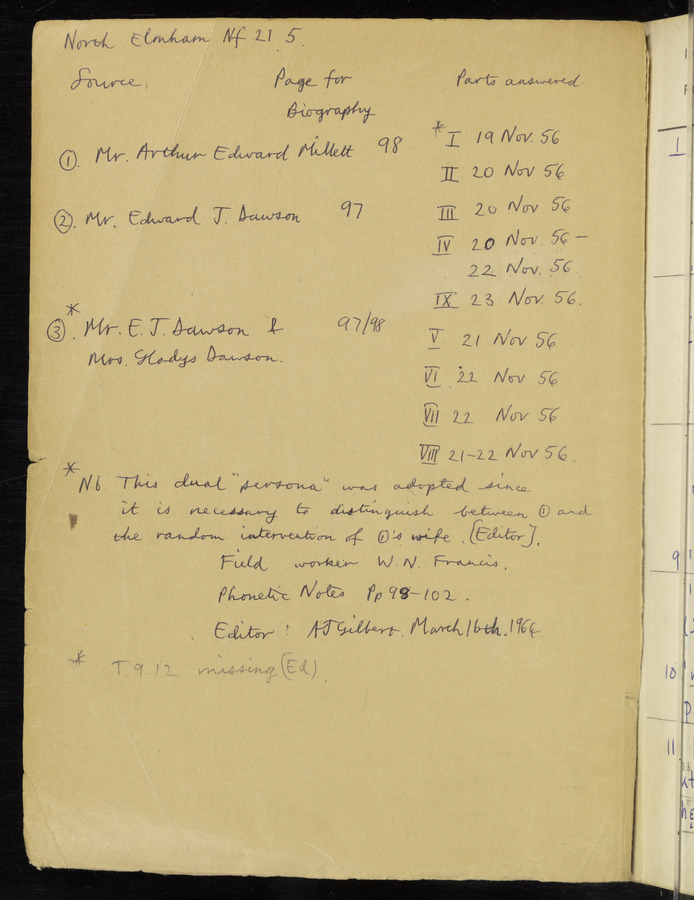 North Elmham Nf 21.5.
Source. Page for Parts answered
Biography
①. Mr. Arthur Edward Millett 98 * I 19 Nov. 56
II 20 Nov 56
②. Mr. Edward J. Dawson 97 III 20 Nov 56
IV 20 Nov. 56 –
22 Nov. 56
IX 23 Nov. 56.
*
③. Mr. E. J. Dawson & 97/98 V 21 Nov 56
Mrs. Gladys Dawson. VI 22 Nov 56
VII 22 Nov 56
VIII 21–22 Nov 56.
* Nb. This dual "persona" was adopted since
it is necessary to distinguish between ① and
the random intervention of ①'s wife. [Editor].
Field worker W. N. Francis.
Phonetic Notes Pp 98–102.
Editor: AJ Gilbert. March 16th. 1964
* T.9.12 missing (Ed).
1
9
10
11